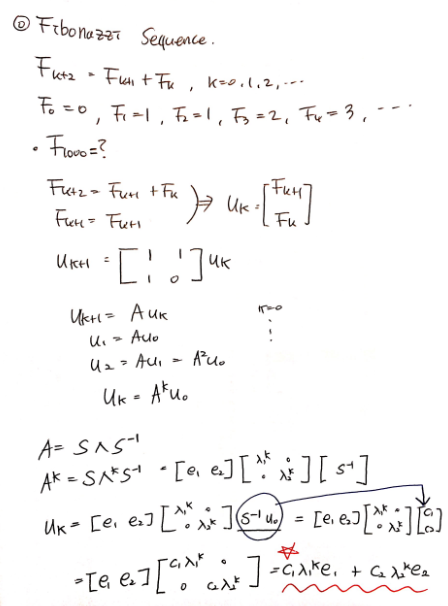 ⓪ Fibonazzi Sequence.
F_{k+2} = F_{k+1} + F_k , k=0,1,2,...
F_0 = 0 , F_1 = 1, F_2 = 1, F_3 = 2, F_4 = 3, ...
• F_{1000} = ?
F_{k+2} = F_{k+1} + F_k
F_{k+1} = F_{k+1}
⇒ u_k = [F_{k+1}; F_k]
u_{k+1} = [1 1; 1 0] u_k
u_{k+1} = A u_k
k=0
⋮
u_1 = Au_0
u_2 = Au_1 = A^2u_0
u_k = A^k u_0
A = SΛS^{-1}
A^k = SΛ^kS^{-1} = [e_1 e_2] [λ_1^k 0; 0 λ_2^k] [S^{-1}]
u_k = [e_1 e_2] [λ_1^k 0; 0 λ_2^k] (S^{-1}u_0) = [e_1 e_2] [λ_1^k 0; 0 λ_2^k] [c_1; c_2]
= [e_1 e_2] [c_1λ_1^k 0; 0 c_2λ_2^k] = c_1λ_1^k e_1 + c_2λ_2^k e_2